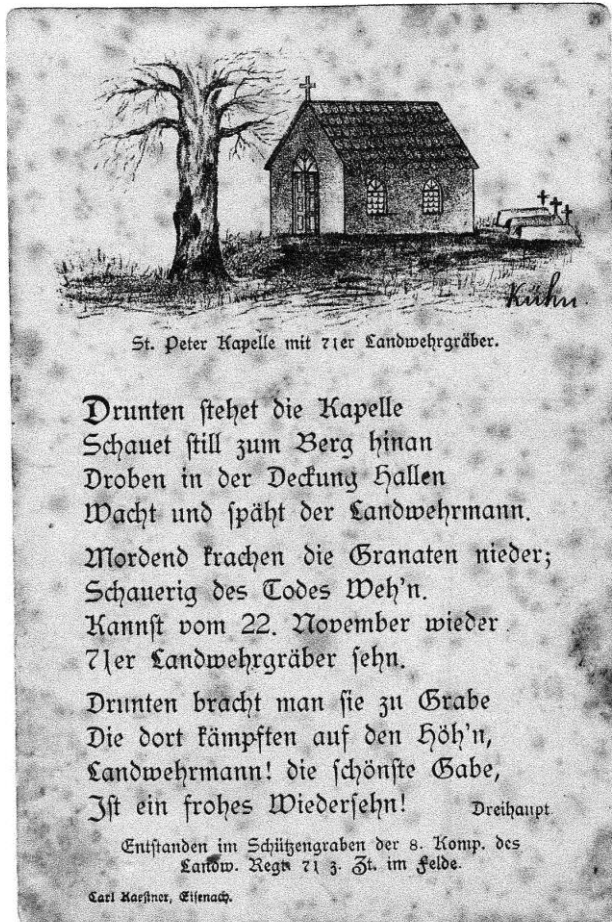 Kühn.
St. Peter Kapelle mit 71er Landwehrgräber.
Drunten stehet die Kapelle
Schauet still zum Berg hinan
Droben in der Deckung Hallen
Wacht und späht der Landwehrmann.
Mordend krachen die Granaten nieder;
Schauerig des Todes Weh'n.
Kannst vom 22. November wieder
71er Landwehrgräber sehn.
Drunten bracht man sie zu Grabe
Die dort kämpften auf den Höh'n,
Landwehrmann! die schönste Gabe,
Ist ein frohes Wiedersehn!
Dreihaupt
Entstanden im Schützengraben der 8. Komp. des
Landw. Regts 71 z. Zt. im Felde.
Carl Kaestner, Eisenach.